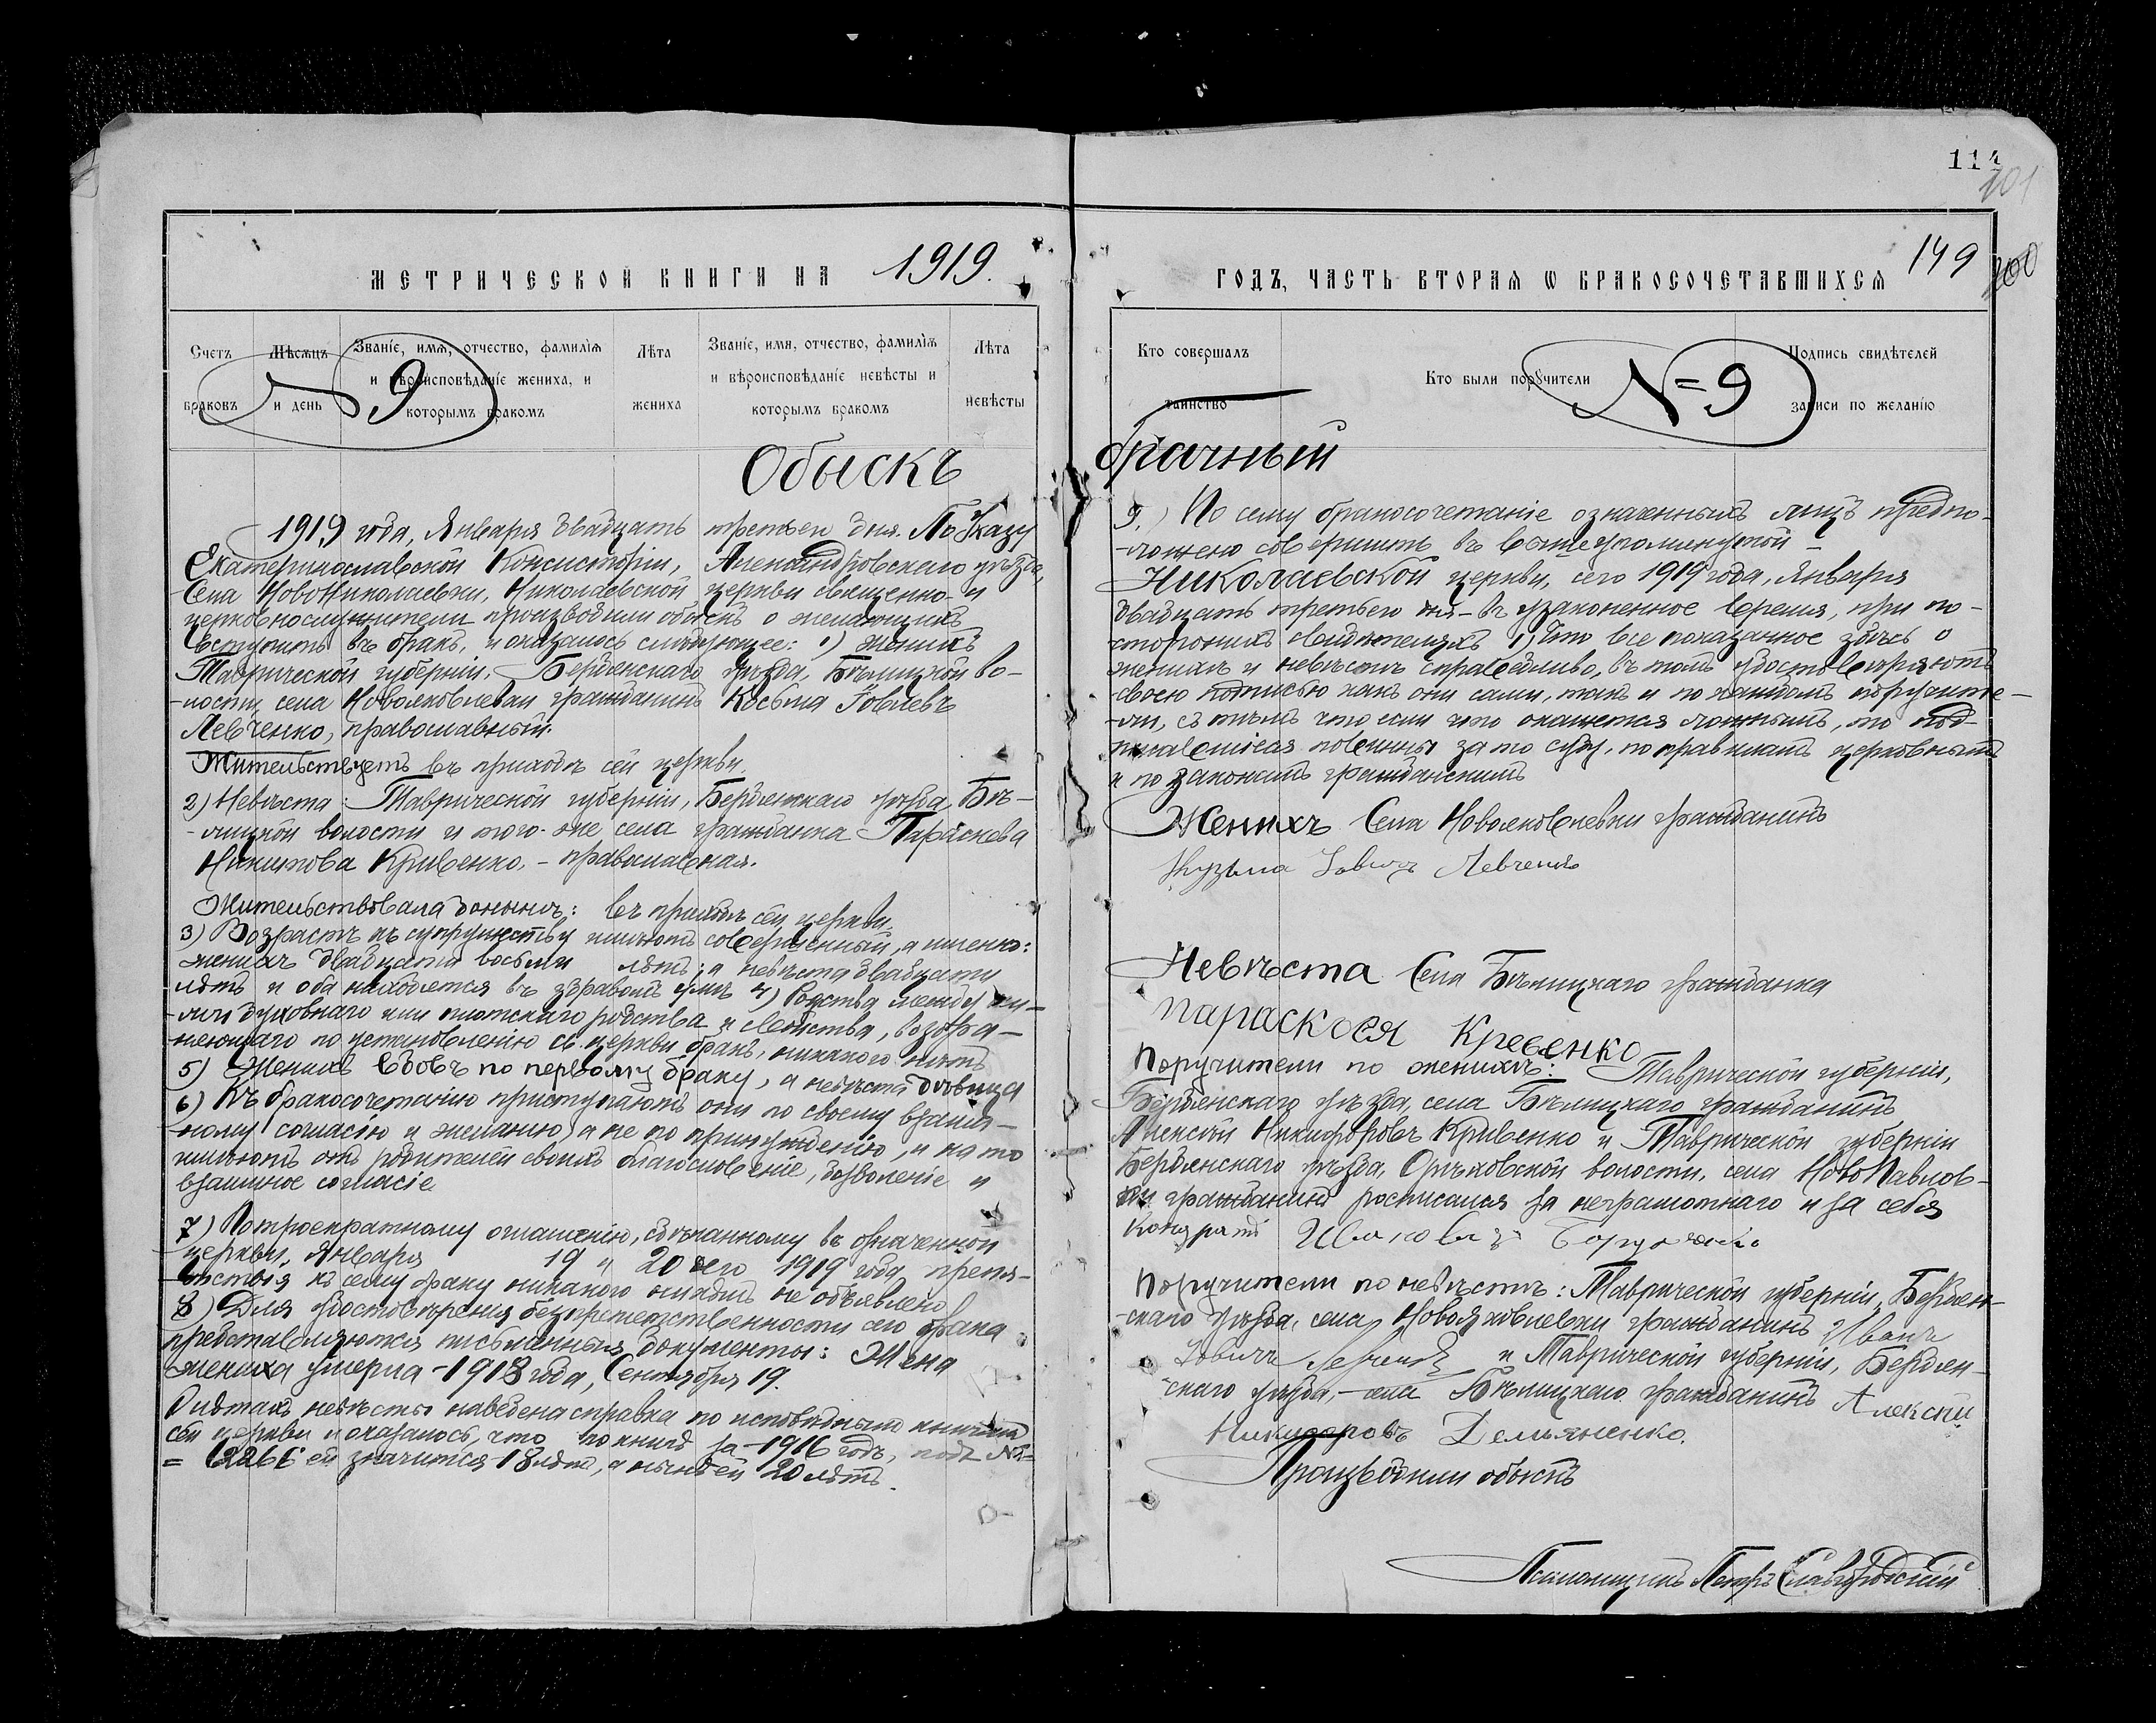 114
101
МЕТРИЧЕСКОЙ КНИГИ НА 1919.
ГОДЪ, ЧАСТЬ ВТОРАЯ Ѡ БРАКОСОЧЕТАВШИХСЯ 149 200
Счетъ браковъ
Мѣсяцъ и день
Званіе, имя, отчество, фамилія и вѣроисповѣданіе жениха, и которымъ бракомъ
Лѣта жениха
Званіе, имя, отчество, фамилія и вѣроисповѣданіе невѣсты и которымъ бракомъ
Лѣта невѣсты
№ 9
Обыскъ
1919 года, Января двадцать третьего дня. По Указу
Екатеринославской Консисторіи, Александровскаго уѣзда,
Села НовоНиколаевки, Николаевской церкви священно- и
церковнослужители производили обыскъ о желающихъ
вступить въ бракъ, и оказалось слѣдующее: 1) женихъ
Таврической губерніи, Бердянскаго уѣзда, Бѣлицкой во-
-лости, села Новояковлевки гражданинъ Косьма Іовлевъ
Левченко, православный.
Жительствуетъ въ приходѣ сей церкви.
2) Невѣста: Таврической губерніи, Бердянскаго уѣзда, Бѣ-
-лицкой волости и того-же села гражданка Параскева
Никитова Кривенко, - православная.
Жительствовала донынѣ: въ приходѣ сей церкви.
3) Возрастъ къ супружеству имѣютъ совершенный, а именно:
женихъ двадцати восьми лѣтъ; а невѣста двадцати
лѣтъ и оба находятся въ здравомъ умѣ 4) Родства между ни-
-ми духовнаго или плотскаго родства и свойства, возбра-
-няющаго по установленію св. церкви бракъ, никакого нѣтъ
5) Женихъ вдовъ по первому браку, а невѣста дѣвица
6) Къ бракосочетанію приступаютъ они по своему взаим-
-ному согласію и желанію, а не по принужденію, и на то
имѣютъ отъ родителей своихъ благословеніе, дозволеніе и
взаимное согласіе
7) По троекратному оглашенію, сдѣланному въ означенной
церкви, Января 19 и 20 сего 1919 года препя-
-тствія къ сему браку никакого никѣмъ не объявлено
8) Для удостовѣренія безпрепятственности сего брака
представляются письменные документы: Жена
жениха умерла - 1918 года, Сентября 19.
О лѣтахъ невѣсты наведена справка по исповѣднымъ книгамъ
сей церкви и оказалось, что по книгѣ за - 1916 годъ, подъ №=
ей значится 18 лѣтъ, а нынѣ ей 20 лѣтъ.
Кто совершалъ таинство
Кто были поручители
Подпись свидѣтелей записи по желанію
№ = 9
брачный
9.) По сему бракосочетаніе означенныхъ лицъ предпо-
-ложено совершить въ вышеупомянутой -
Николаевской церкви, сего 1919 года, Января
двадцать третьего дня - въ узаконенное время, при по-
-стороннихъ свидѣтеляхъ 1) Что все показанное здѣсь о
женихѣ и невѣстѣ справедливо, въ томъ удостовѣряютъ
своею подписью какъ они сами, такъ и по каждомъ поручите-
-ли, съ тѣмъ что если что окажется ложнымъ, то под-
писавшіеся повинны за то суду, по правиламъ церковнымъ
и по законамъ гражданскимъ
Женихъ Села Новояковлевки гражданинъ
Кузьма Іовичъ Левченко
Невѣста Села Бѣлицкаго гражданка
параскева Кревенко
Поручители по женихѣ: Таврической губерніи,
Бердянскаго уѣзда, села Бѣлицкаго гражданинъ
Алексѣй Никифоровъ Кривенко и Таврической губерніи
Бердянскаго уѣзда, Орѣховской волости, села НовоПавлов-
ки гражданинъ росписался за неграмотнаго и за себя
Кондратій Ивановичъ
Поручители по невѣстѣ: Таврической губерніи, Бердян-
-скаго уѣзда, села Новояковлевки гражданинъ Иванъ
Іовичъ Левченко и Таврической губерніи, Бердян-
-скаго уѣзда, - села Бѣлицкаго гражданинъ Алексѣй
Никифоровъ Демьяненко.
Производили обыскъ
Псаломщикъ Петръ Славгородскій